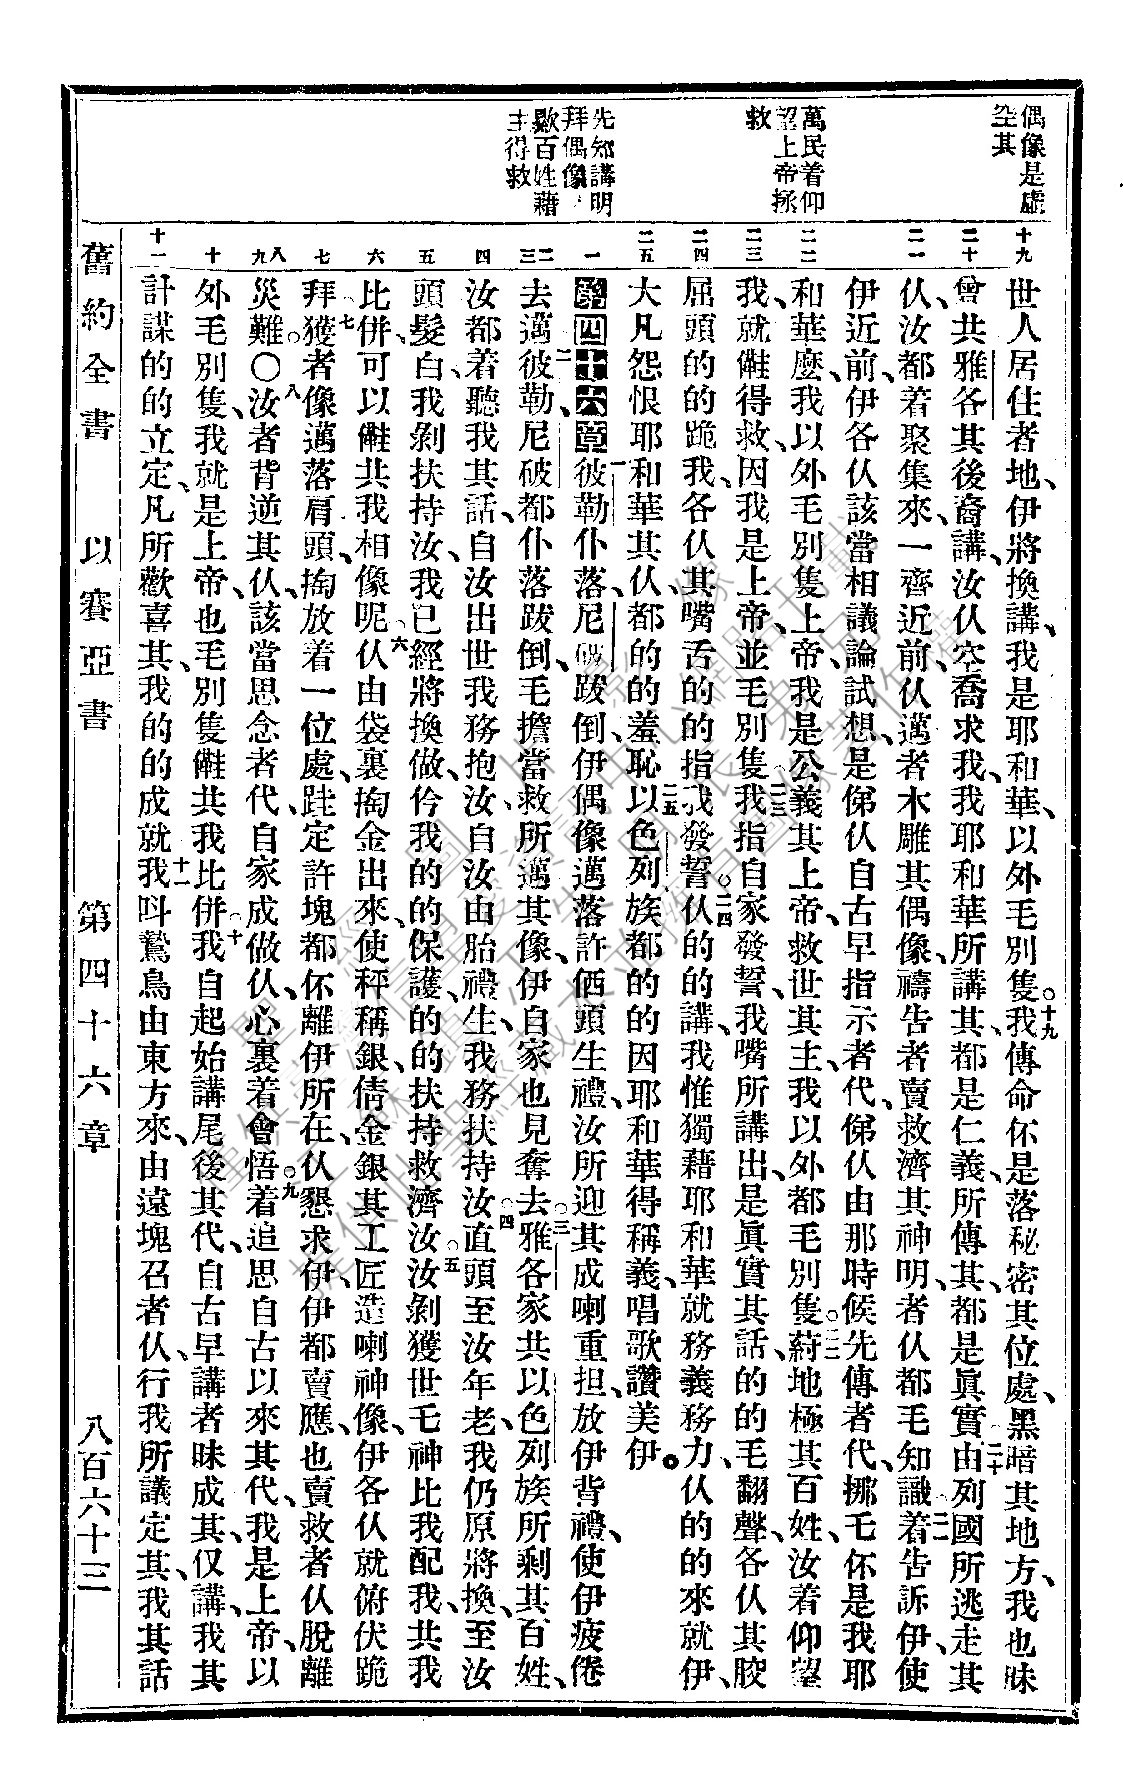 偶像是虛
空其
萬民着仰
望上帝拯
救
先知講明
拜偶像
歟百姓藉
主得救
十九
二十
二一
二二
二三
二四
二五
一
二
三
四
五
六
七
八
九
十
十一
世人居住者地、伊將換講、我是耶和華、以外毛別隻。十九我傳命伓是落秘密其位處、黑暗其地方、我也昧
曾共雅各其後裔講、汝仈空喬求我、我耶和華所講其、都是仁義、所傳其、都是眞實。二十由列國所逃走其
仈、汝都着聚集來、一齊近前、仈邁者木雕其偶像、禱告者賣救濟其神明、者仈都毛知識。二一着告訴伊、使
伊近前、伊各仈該當相議論試想、是俤仈自古早指示者代、俤仈由那時候先傳者代、挪乇伓是我耶
和華麽、我以外毛別隻上帝、我是公義其上帝、救世其主、我以外都毛別隻。二二葤地極其百姓、汝着仰望
我、就䧹得救、因我是上帝、並毛別隻。二三我指自家發誓、我嘴所講出、是眞實其話、的的毛翻聲、各仈其膝
屈頭的的跪我、各仈其嘴舌的的指我發誓。二四仈的的講、我惟獨藉耶和華、就務義務力、仈的的來就伊、
大凡怨恨耶和華其仈、都的的羞恥。二五以色列族都的的因耶和華得稱義、唱歌讚美伊。
第四十六章 一彼勒仆落、尼破跋倒、伊偶像邁落許倆頭生禮、汝所迎其成喇重担、放伊背禮、使伊疲倦
二去邁彼勒、尼破、都仆落跋倒、毛擔當救所邁其像、伊自家也見奪去。三雅各家共以色列族所剩其百姓、
汝都着聽我其話、自汝出世我務抱汝、自汝由胎禮生、我務扶持汝。四直頭至汝年老、我仍原將換、至汝
頭髮白、我剝扶持汝、我已經將換做、仱我的的保護、的的扶持救濟汝。五汝剝獲世乇神比我配我、共我
比併、可以䧹共我相像呢。六仈由袋裏掏金出來、使秤稱銀、倩金銀其工匠造喇神像、伊各仈就俯伏跪
拜。七獲者像邁落肩頭、掏放着一位處、跬定許塊、都伓離伊所在、仈懇求伊、伊都賣應、也賣救者仈脫離
災難。〇八汝者背逆其仈、該當思念者代、自家成做仈、心裏着會悟。九着追思自古以來其代、我是上帝、以
外毛別隻、我就是上帝、也毛別隻䧹共我比併。十我自起始講尾後其代、自古早講者昧成其、仅講、我其
計謀的的立定、凡所歡喜其、我的的成就。十一我呌鷙鳥由東方來、由遠塊召者仈、行我所議定其、我其話
舊約全書 以賽亞書 第四十六章 八百六十三